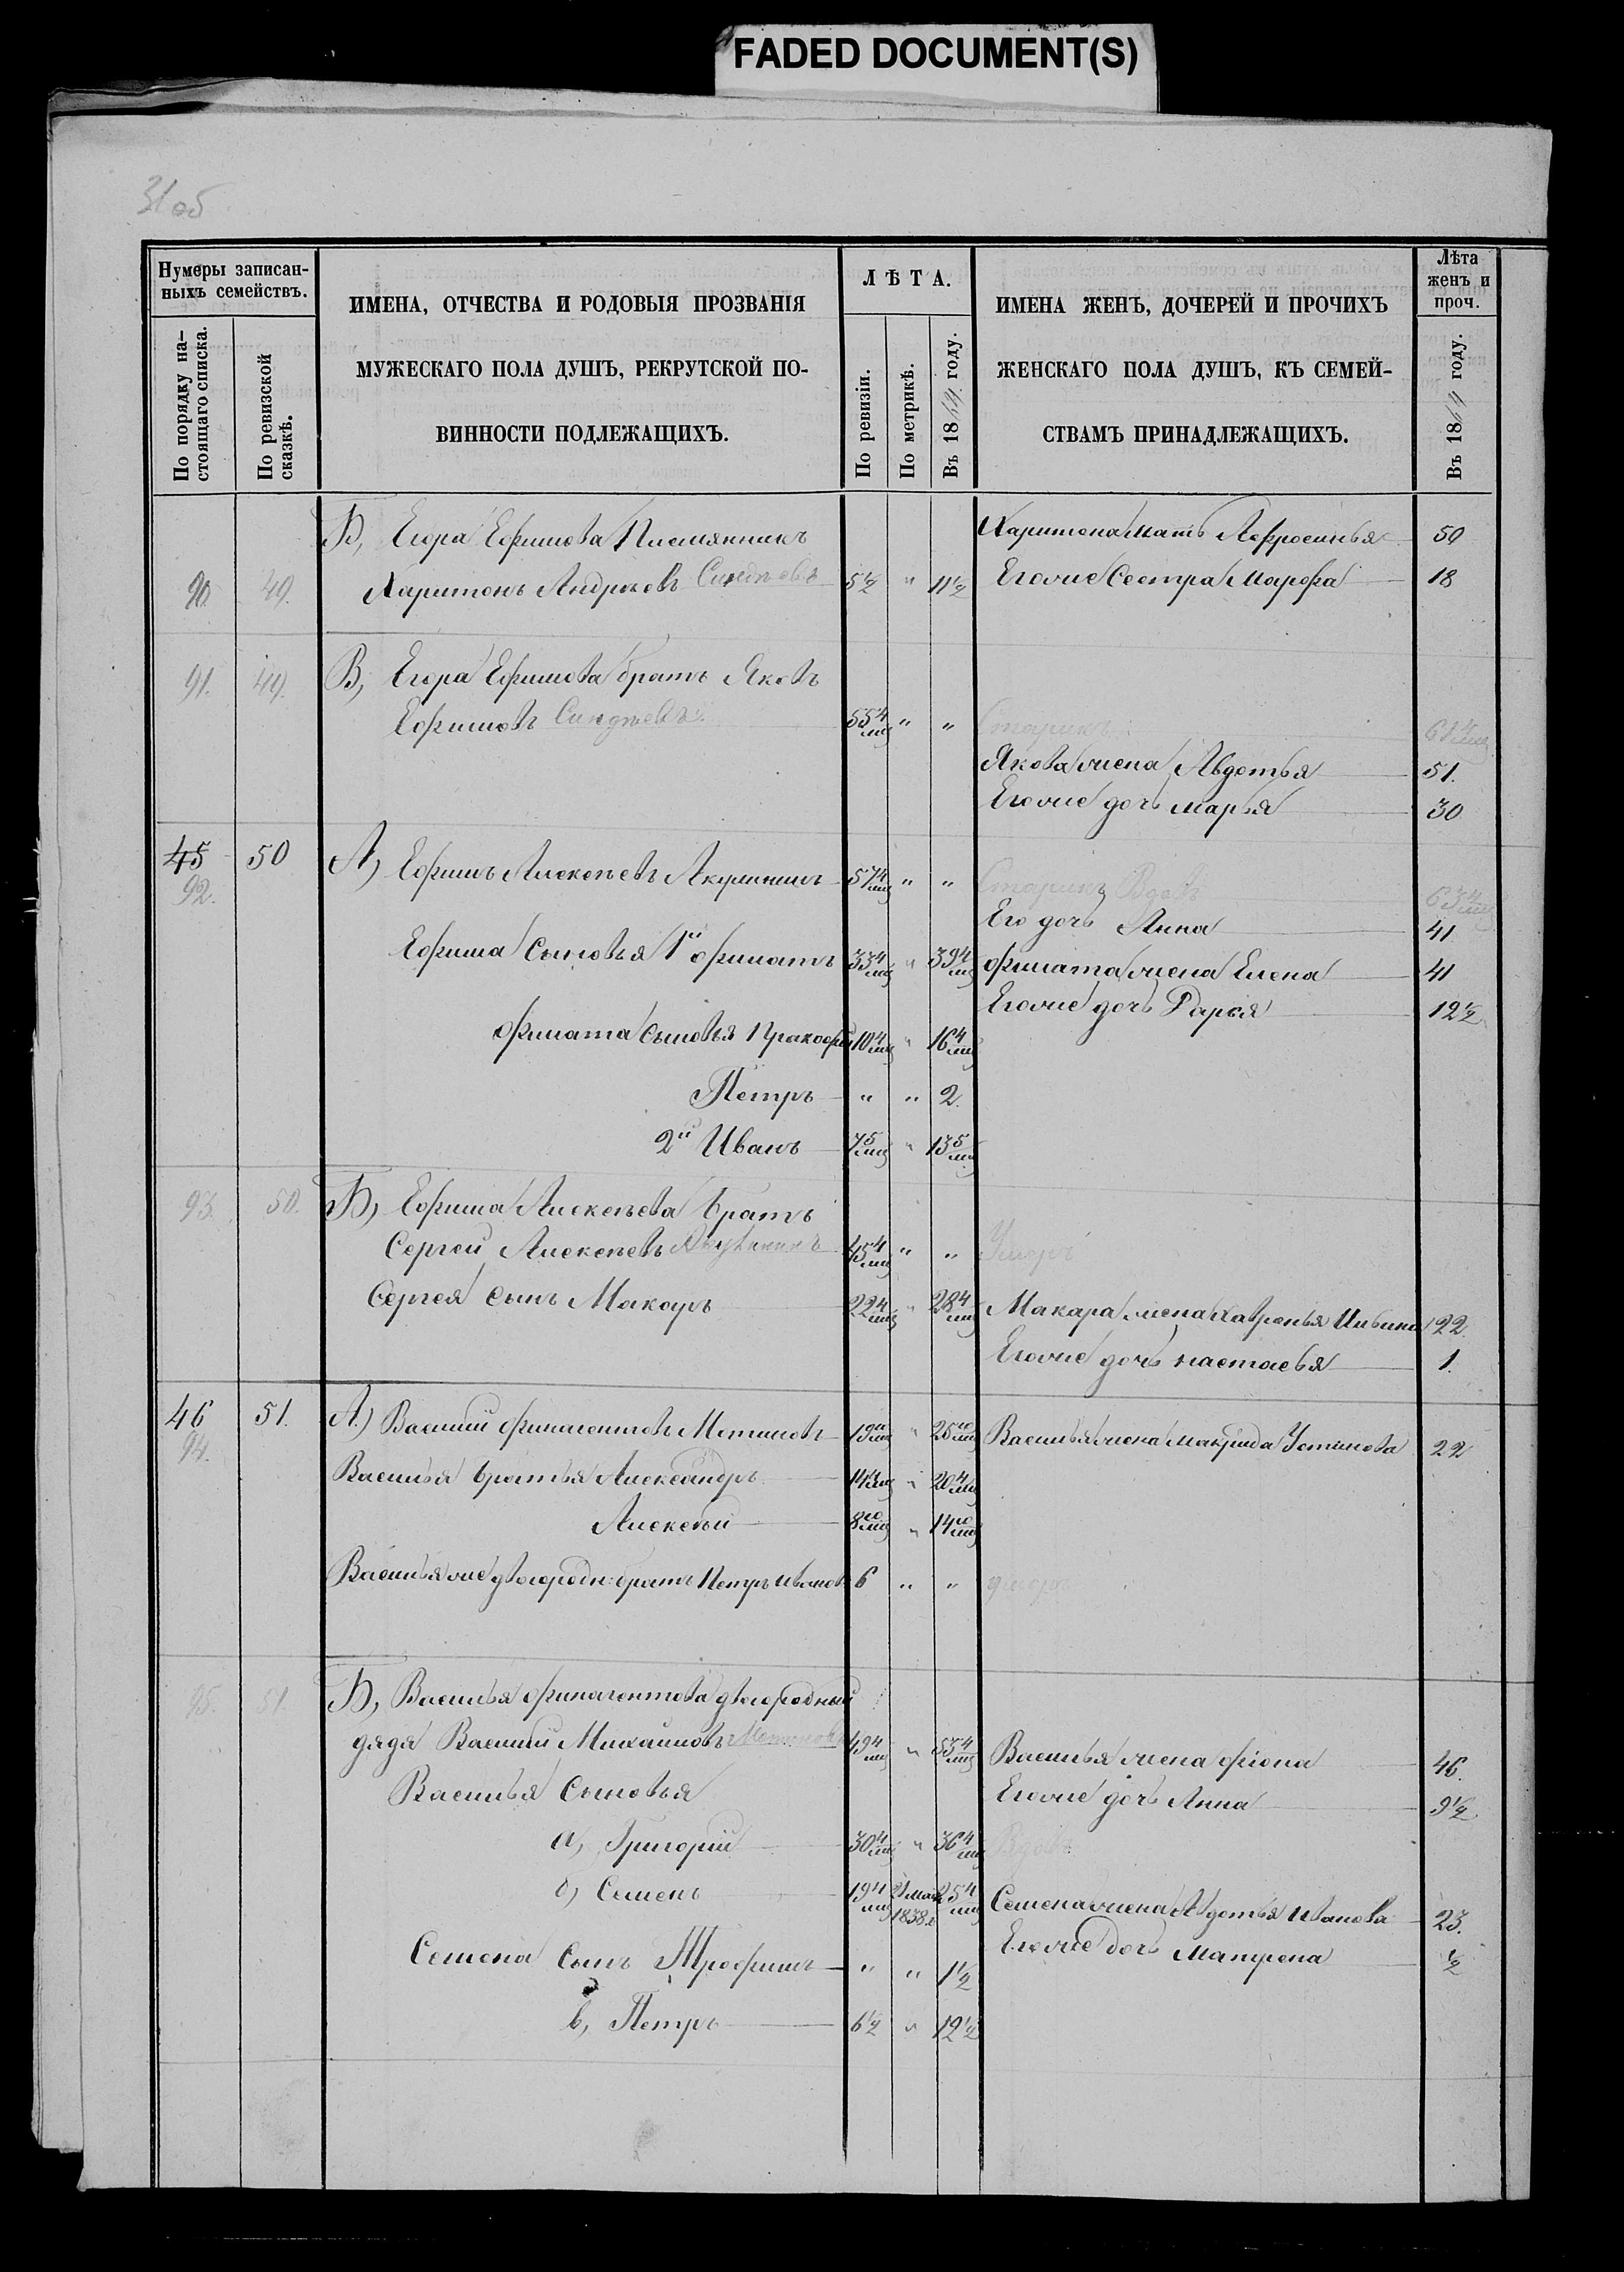 FADED DOCUMENT(S)
31 об
Нумеры записан-
ныхъ семействъ.
По порядку на-
стоящаго списка.
По ревизской
сказкѣ.
ИМЕНА, ОТЧЕСТВА И РОДОВЫЯ ПРОЗВАНІЯ
МУЖЕСКАГО ПОЛА ДУШЪ, РЕКРУТСКОЙ ПО-
ВИННОСТИ ПОДЛЕЖАЩИХЪ.
ЛѢТА.
По ревизіи.
По метрикѣ.
Въ 1864 году.
ИМЕНА ЖЕНЪ, ДОЧЕРЕЙ И ПРОЧИХЪ
ЖЕНСКАГО ПОЛА ДУШЪ, КЪ СЕМЕЙ-
СТВАМЪ ПРИНАДЛЕЖАЩИХЪ.
Лѣта
женъ и
проч.
Въ 1864 году.
Б, Егора Ефимова Племянникъ Харитона мать Афросинья 50
90. 49. Харитонъ Андреевъ 5½ " 11½ Егоже Сестра Марфа 18
91. 49. В, Егора Ефимова братъ Яковъ
Ефимовъ 55 4/мц " " Старикъ 61 4/мц
Якова жена Авдотья 51.
Егоже дочь Марья 30
45 50 А) Ефимъ Алексѣевъ Акулининъ 57 4/мц " " Старикъ Вдовъ 63 4/мц
92. Его дочь Анна 41
Ефима Сыновья 1й Филатъ 33 4/мц " 39 4/мц Филата жена Елена 41
Егоже дочь Дарья 12½
Филата Сыновья Пракофій 10 4/мц " 16 4/мц
Петръ " " 2.
2й Иванъ 7 5/мц " 13 5/мц
93. 50. Б, Ефима Алексѣева братъ
Сергей Алексѣевъ Акулининъ 45 4/мц " " Умеръ
Сергея Сынъ Макаръ 22 4/мц " 28 4/мц Макара жена Хавронья Ильина 22.
Егоже дочь Настасья 1.
46 51. А) Василій Филиментовъ Метиновъ 19 10/мц " 25 10/мц Василья жена Макрида Устинова 22
94.
Василья братья Александръ 14 4/мц " 20 4/мц
Алексѣй 8 10/мц " 14 10/мц
Василья же двоюродн: братъ Петръ Ивановъ 6 " " умеръ
95. 51. Б, Василья Филиментова двоюродный
дядя Василій Михаиловъ Метиновъ 49 4/мц " 53 4/мц Василья жена Фіона 46.
Василья Сыновья Егоже дочь Анна 9½
а, Григорій 30 4/мц " 36 4/мц Вдовъ
б) Семенъ 19 4/мц 21 Мая 1838 г 25 4/мц Семена жена Авдотья Иванова 23.
Семена Сынъ Трофимъ " " 1½ Егоже дочь Матрена ½
в, Петръ 6½ " 12½